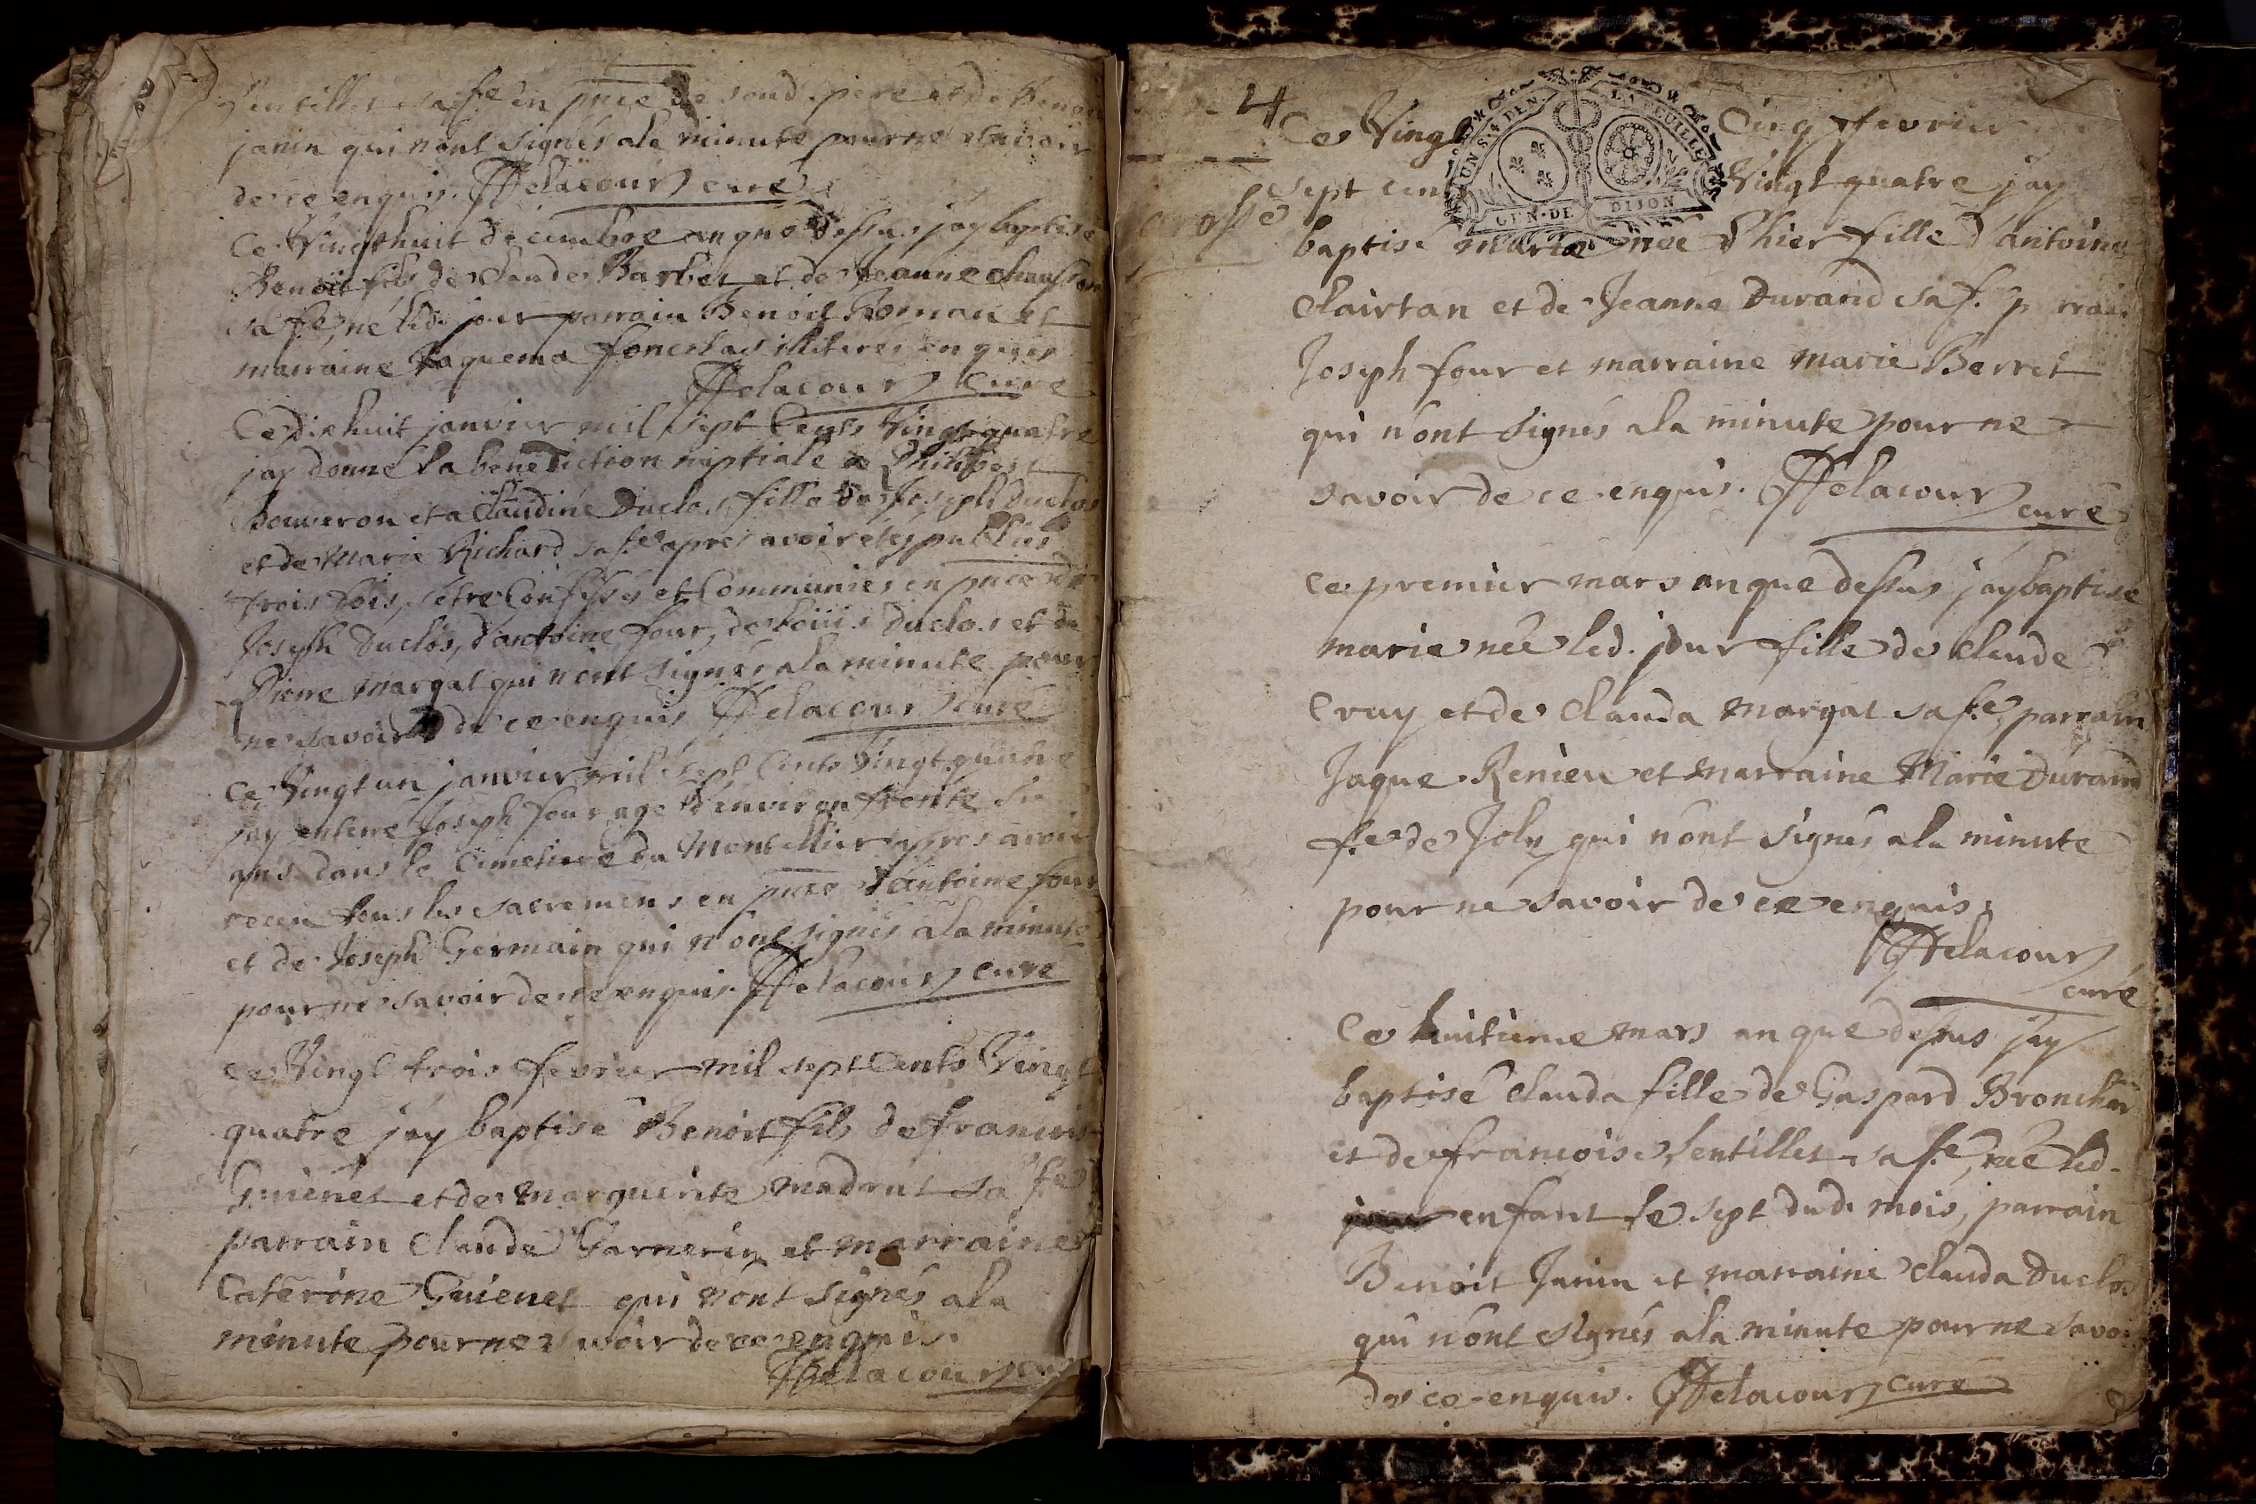 Lentillet sa fe en pnce de soud. pere et de Benoit
janin qui n'ont signés ala minute pour ne scavoir
de ce enquis. Delacour curé
Ce Vingt huit decembre an que dessus jay baptisé
Benoit fils de Claude Barbet et de Jeanne
sa fe, né led. jour parrain Benoit et
marraine Jaquema illiterés enquis
Delacour curé
Ce dixhuit janvier mil sept Cents Vingt quatre
jay donné la benediction nuptiale a Philibert
Bouveron et a Claudine Duclos, fille de Joseph Duclos
et de Marie Richard sa fe apres avoir etes publiés
trois fois, s'etre Confessés et Communiés en pnce de
Joseph Duclos, d'antoine four, de Louiis duclos et de
Pierre Margat qui n'ont signés ala minute pour
ne savoir de ce enquis Delacour curé
Ce Vingt un janvier mil sept Cents Vingt quatre
jay enterré Joseph four agé d'environ trente six
ans dans le Cimetiere du Montellier apres avoir
receu tous les sacremens en pnce d'antoine four
et de Joseph Germain qui n'ont signés ala minute
pour ne savoir de ce enquis. Delacour curé
ce Vingt trois fevrier mil sept Cents Vingt
quatre jay baptisé Benoit fils de francois
Guienet et de marguerite madant sa fe
parrain Claude Garnerin et marraine
Caterine Guienet qui n'ont signés ala
minute pour ne savoir de ce enquis.
Delacour curé
4
Ce Vingt Cinq fevrier
UN S. 4 DEN. LA FEUILLE
sept cent Vingt quatre jay
GEN. DE DIJON
baptisé marie née d'hier fille d'antoine
Clairtan et de Jeanne Durand sa f. parrain
Joseph four et marraine marie Berret
qui n'ont signés ala minute pour ne
savoir de ce enquis. Delacour
curé
ce premier mars an que dessus jay baptisé
marie née led. jour fille de claude
Cruy et de Clauda margat sa fe, parrain
Jaque Renieu et marraine Marie Durand
fe de Joly qui n'ont signés ala minute
pour ne savoir de ce enquis.
Delacour
curé
Ce huitieme mars an que dessus jay
baptisé clauda fille de Gaspard
et de francoise Lentillet sa fe, née led.
enfant le sept dud. mois, parrain
Benoit Janin et marraine clauda Duclos
qui n'ont signés ala minute pour ne savoir
de ce enquis. Delacour curé